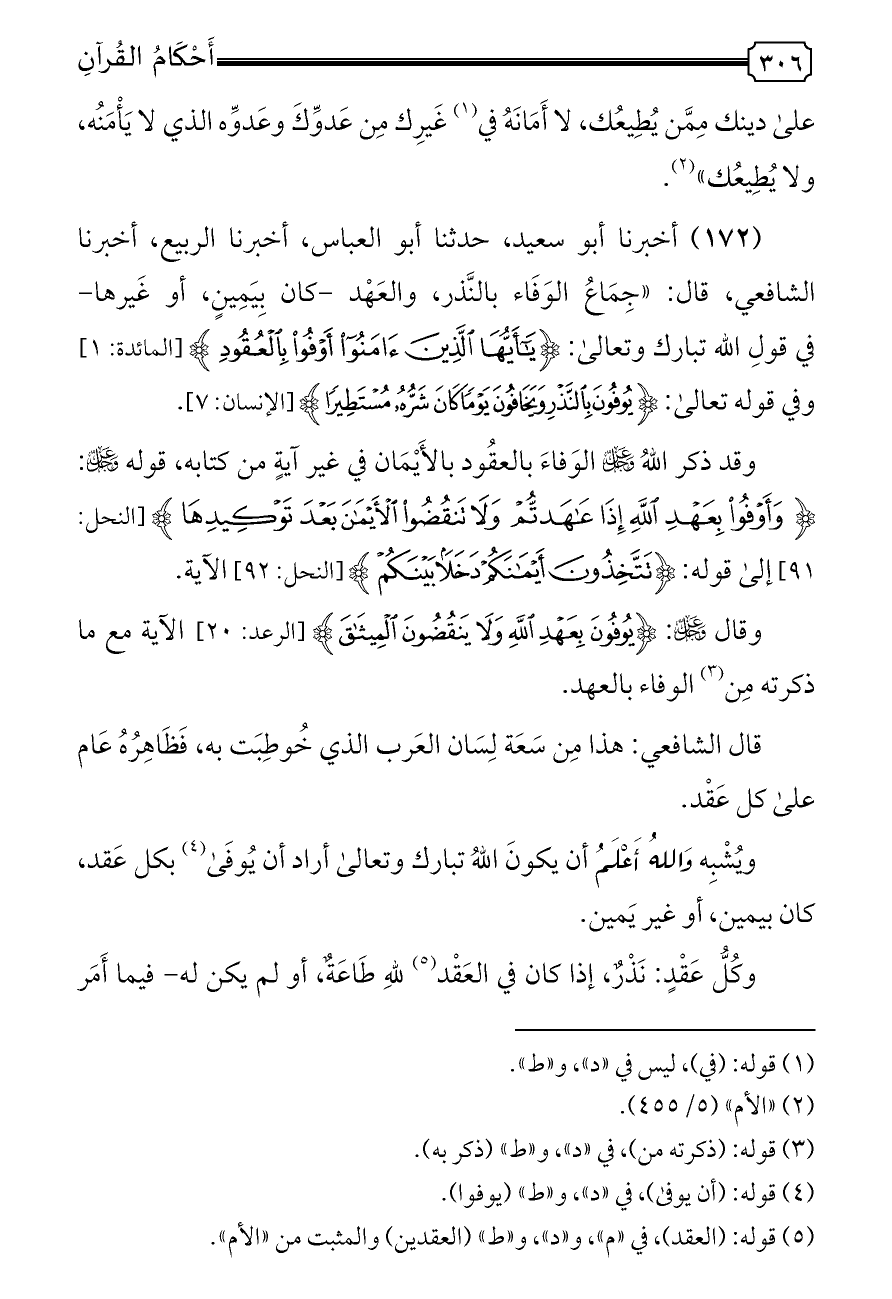 أَحْكَامُ القُرآنِ
٣٠٦
علىٰ دينك مِمَّن يُطِيعُك، لا أَمَانَهُ في(١) غَيرِك مِن عَدوِّكَ وعَدوِّه الذي لا يَأْمَنُه،
ولا يُطِيعُك»(٢).
(١٧٢) أخبرنا أبو سعيد، حدثنا أبو العباس، أخبرنا الربيع، أخبرنا
الشافعي، قال: «جِمَاعُ الوَفَاء بالنَّذر، والعَهْد -كان بِيَمِينٍ، أو غَيرها-
في قولِ الله تبارك وتعالىٰ: ﴿يَٰٓأَيُّهَا ٱلَّذِينَ ءَامَنُوٓا۟ أَوْفُوا۟ بِٱلْعُقُودِ﴾ [المائدة: ١]
وفي قوله تعالىٰ: ﴿يُوفُونَ بِٱلنَّذْرِ وَيَخَافُونَ يَوْمًا كَانَ شَرُّهُۥ مُسْتَطِيرًا﴾ [الإنسان: ٧].
وقد ذكر اللهُ عَزَّوَجَلَّ الوَفاءَ بالعقُود بالأَيْمَان في غير آيةٍ من كتابه، قوله عَزَّوَجَلَّ:
﴿وَأَوْفُوا۟ بِعَهْدِ ٱللَّهِ إِذَا عَٰهَدتُّمْ وَلَا تَنقُضُوا۟ ٱلْأَيْمَٰنَ بَعْدَ تَوْكِيدِهَا﴾ [النحل:
٩١] إلىٰ قوله: ﴿تَتَّخِذُونَ أَيْمَٰنَكُمْ دَخَلًۢا بَيْنَكُمْ﴾ [النحل: ٩٢] الآية.
وقال عَزَّوَجَلَّ: ﴿يُوفُونَ بِعَهْدِ ٱللَّهِ وَلَا يَنقُضُونَ ٱلْمِيثَٰقَ﴾ [الرعد: ٢٠] الآية مع ما
ذكرته مِن(٣) الوفاء بالعهد.
قال الشافعي: هذا مِن سَعَة لِسَان العَرب الذي خُوطِبَت به، فَظَاهِرُهُ عَام
علىٰ كل عَقْد.
ويُشْبِه وَاللهُ أَعْلَمُ أن يكونَ اللهُ تبارك وتعالىٰ أراد أن يُوفَىٰ(٤) بكل عَقد،
كان بيمين، أو غير يَمين.
وكُلُّ عَقْدٍ: نَذْرٌ، إذا كان في العَقْد(٥) للهِ طَاعَةٌ، أو لم يكن له- فيما أَمَر
(١) قوله: (في)، ليس في «د»، و«ط».
(٢) «الأم» (٥/ ٤٥٥).
(٣) قوله: (ذكرته من)، في «د»، و«ط» (ذكر به).
(٤) قوله: (أن يوفىٰ)، في «د»، و«ط» (يوفوا).
(٥) قوله: (العقد)، في «م»، و«د»، و«ط» (العقدين) والمثبت من «الأم».